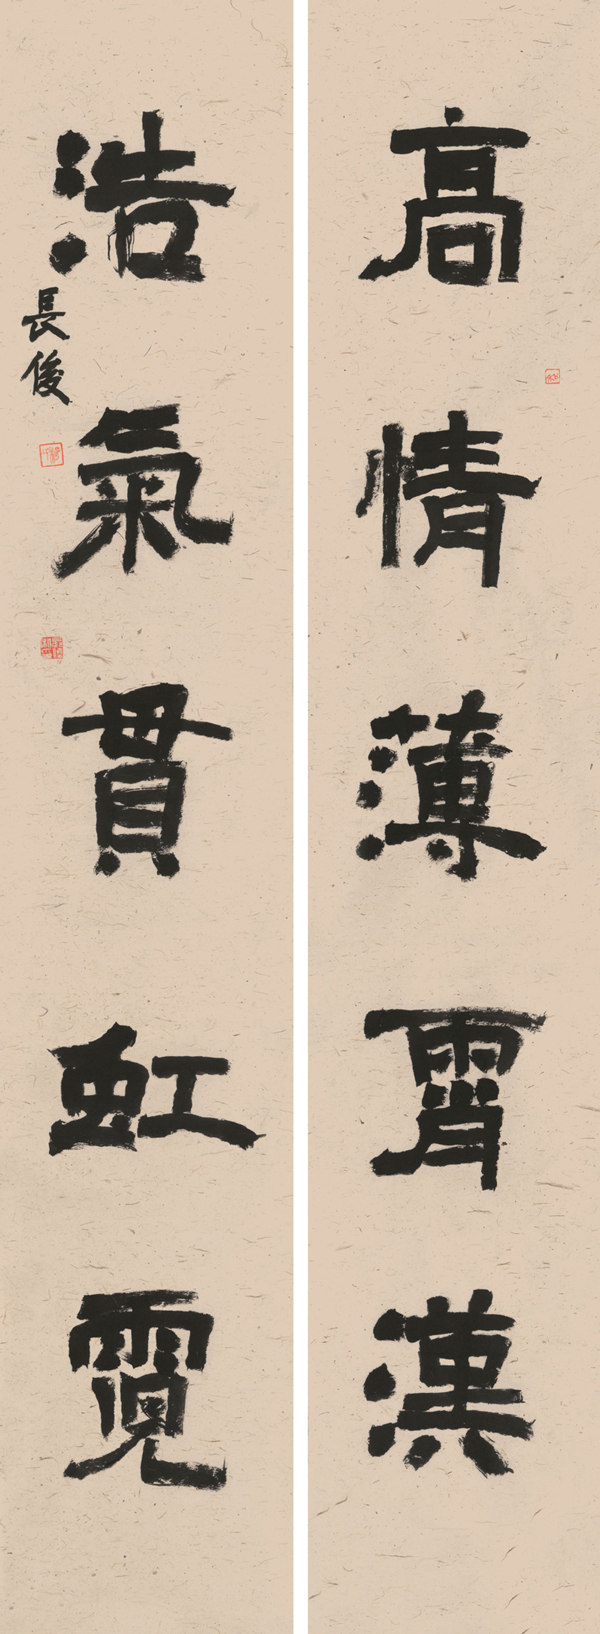 高情薄霄漢
浩氣貫虹霓
長俊